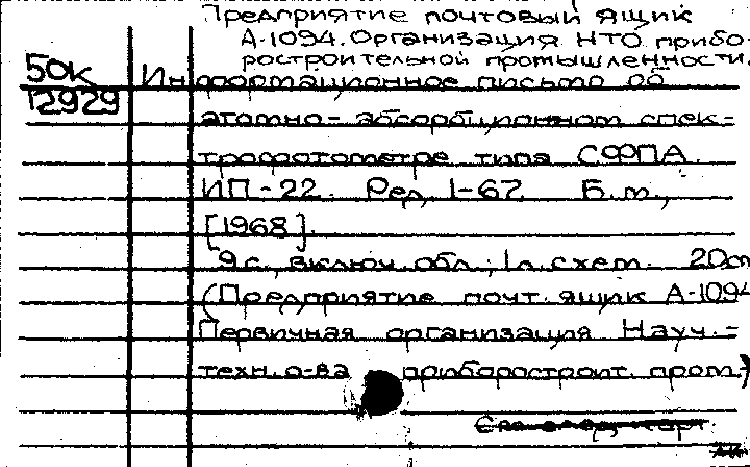 Предприятие почтовый ящик
А-1094. Организация НТО прибо-
ростроительной промышленности.
50к
12929
Информационное письмо об
атомно-абсорбционном спек-
трофотометре типа СФПА
ИП-22. Ред. 1-67. Б.м.,
[1968].
9 с., включ. обл.; 1 л. схем. 20см
(Предприятие почт. ящик А-1094
Первичная организация Науч.-
техн. о-ва приборостроит. пром.)